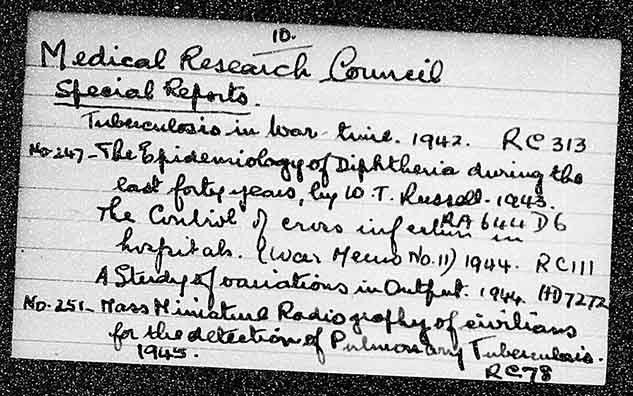 10.
Medical Research Council
Special Reports.
Tuberculosis in War-time. 1942. RC 313
No. 247 - The Epidemiology of Diphtheria during the
last forty years, by W. T. Russell. 1943.
RA 644 D6
The Control of cross infection in
hospitals. (War Memo No. 11) 1944. RC 111
A Study of variations in Output. 1944. HD 7272
No. 251 - Mass Miniature Radiography of civilians
for the detection of Pulmonary Tuberculosis.
1945. RC 78